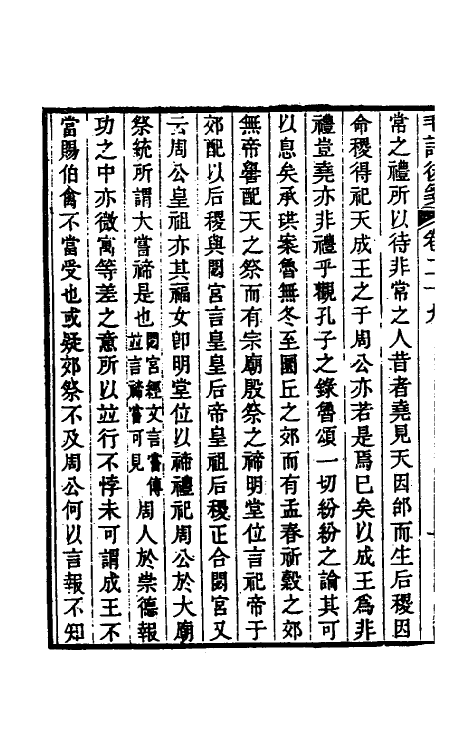 毛詩後箋 卷二十九
常之禮所以待非常之人昔者堯見天因邰而生后稷因
命稷得祀天成王之于周公亦若是焉巳矣以成王爲非
禮豈堯亦非禮乎觀孔子之錄魯頌一切紛紛之論其可
以息矣承珙案魯無冬至圜丘之郊而有孟春祈穀之郊
無帝嚳配天之祭而有宗廟殷祭之禘明堂位言祀帝于
郊配以后稷與閟宮言皇皇后帝皇祖后稷正合閟宮又
云周公皇祖亦其福女卽明堂位以禘禮祀周公於大廟
祭統所謂大嘗禘是也閟宮經文言嘗傳並言禘嘗可見周人於崇德報
功之中亦微寓等差之意所以並行不悖未可謂成王不
當賜伯禽不當受也或疑郊祭不及周公何以言報不知